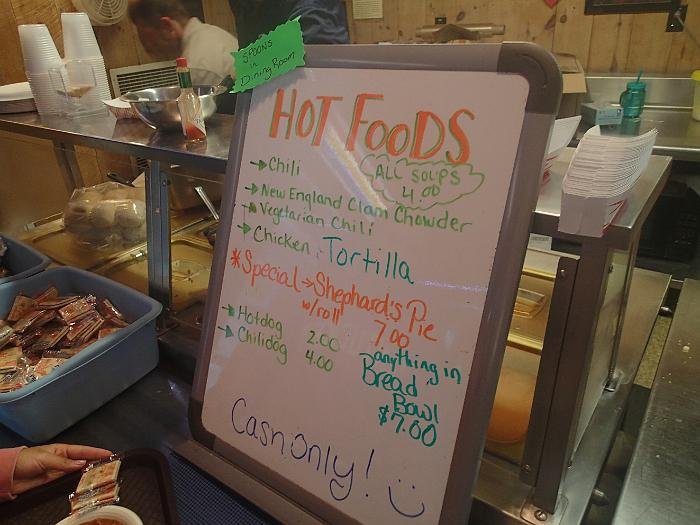 SPOONS
in
Dining Room
HOT FOODS
→ Chili
ALL SOUPS
4.00
→ New England Clam Chowder
→ Vegetarian Chili
→ Chicken Tortilla
*Special → Shephard's Pie
w/roll 7.00
→ Hotdog 2.00
→ Chilidog 4.00
anything in
Bread
Bowl
$7.00
Cash only!